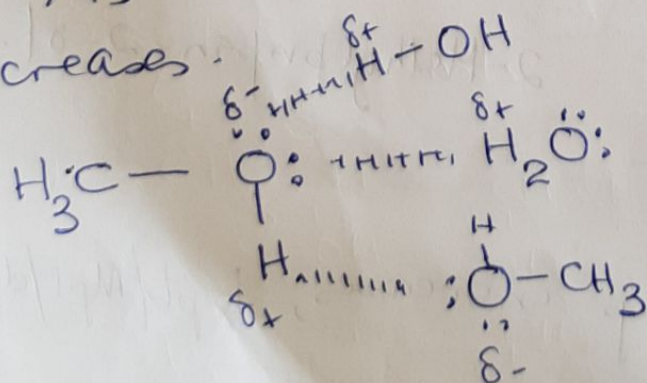 creases.
δ+
H–OH
δ-
δ+
H₃C — O: H₂O:
H
H :O–CH₃
δ+
δ-